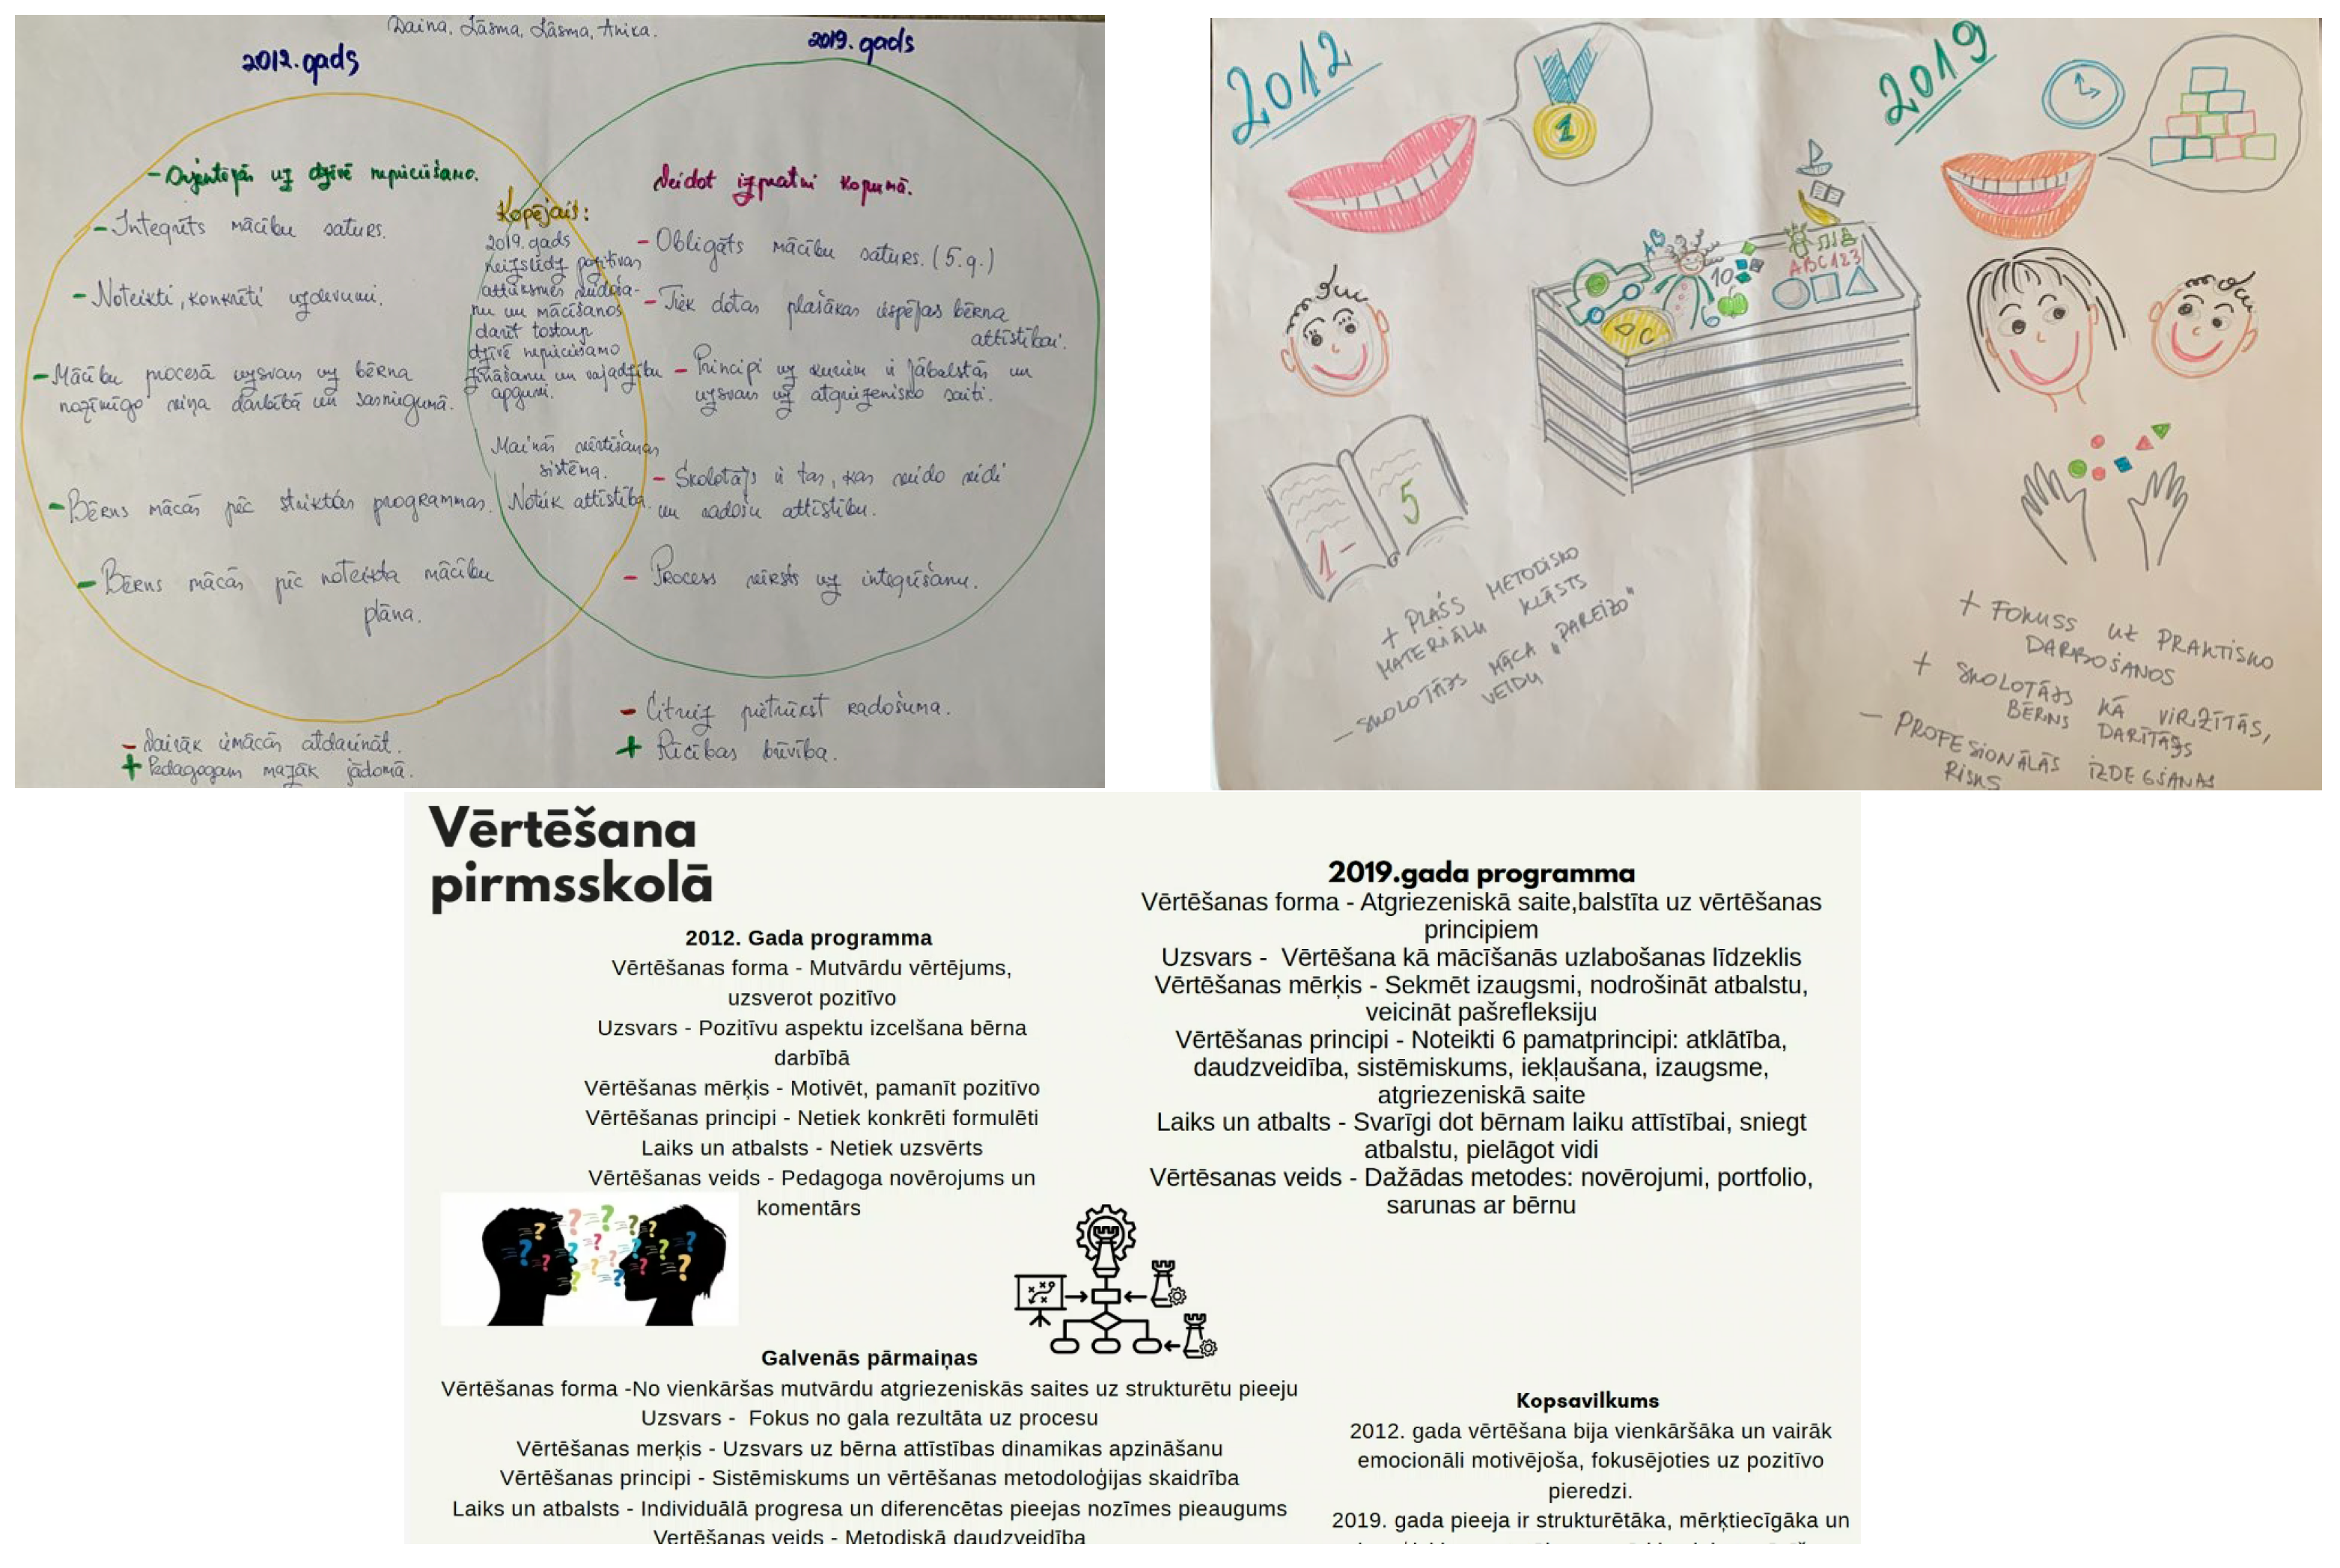 Daina, Lāsma, Lāsma, Anika.
2012.gads
- Orjentējās uz dzīvē nepieciešamo.
- Integrēts mācību saturs.
- Noteikti, konkrēti uzdevumi.
- Mācību procesā uzsvars uz bērna
nozīmīgo viņa darbībā un sasniegumā.
- Bērns mācās pēc striktās programmas.
- Bērns mācās pēc noteikta mācību
plāna.
- Vairāk iemācās atdarināt.
+ Pedagogam mazāk jādomā.
Kopējais:
2019.gads
neizslēdz pozitīvas
attieksmes veidoša-
nu un mācīšanos
darīt tostarp
dzīvē nepieciešamo
zināšanu un vajadzību
apguvi.
Mainās vērtēšanas
sistēma.
Notiek attīstība.
2019.gads
Veidot izpratni kopumā.
- Obligāts mācību saturs. (5.g.)
- Tiek dotas plašākas iespējas bērna
attīstībai.
- Principi uz kuriem ir jābalstās un
uzsvars uz atgriezenisko saiti.
- Skolotājs ir tas, kas veido vidi
un radošu attīstību.
- Process vērsts uz integrēšanu.
- Citreiz pietrūkst radošuma.
+ Rīcības brīvība.
2012
1
1-
5
+ PLAŠS METODISKO
MATERIĀLU KLĀSTS
- SKOLOTĀJS MĀCA „PAREIZO"
VEIDU
AB
10
6
C
ABC123
2019
+ FOKUSS UZ PRAKTISKO
DARBOŠANOS
+ SKOLOTĀJS KĀ VIRZĪTĀJS,
BĒRNS DARĪTĀJS
- PROFESIONĀLĀS IZDEGŠANAS
RISKS
Vērtēšana
pirmsskolā
2012. Gada programma
Vērtēšanas forma - Mutvārdu vērtējums,
uzsverot pozitīvo
Uzsvars - Pozitīvu aspektu izcelšana bērna
darbībā
Vērtēšanas mērķis - Motivēt, pamanīt pozitīvo
Vērtēšanas principi - Netiek konkrēti formulēti
Laiks un atbalsts - Netiek uzsvērts
Vērtēšanas veids - Pedagoga novērojums un
komentārs
2019.gada programma
Vērtēšanas forma - Atgriezeniskā saite,balstīta uz vērtēšanas
principiem
Uzsvars - Vērtēšana kā mācīšanās uzlabošanas līdzeklis
Vērtēšanas mērķis - Sekmēt izaugsmi, nodrošināt atbalstu,
veicināt pašrefleksiju
Vērtēšanas principi - Noteikti 6 pamatprincipi: atklātība,
daudzveidība, sistēmiskums, iekļaušana, izaugsme,
atgriezeniskā saite
Laiks un atbalts - Svarīgi dot bērnam laiku attīstībai, sniegt
atbalstu, pielāgot vidi
Vērtēsanas veids - Dažādas metodes: novērojumi, portfolio,
sarunas ar bērnu
Galvenās pārmaiņas
Vērtēšanas forma -No vienkāršas mutvārdu atgriezeniskās saites uz strukturētu pieeju
Uzsvars - Fokus no gala rezultāta uz procesu
Vērtēšanas merķis - Uzsvars uz bērna attīstības dinamikas apzināšanu
Vērtēšanas principi - Sistēmiskums un vērtēšanas metodoloģijas skaidrība
Laiks un atbalsts - Individuālā progresa un diferencētas pieejas nozīmes pieaugums
Vertēšanas veids - Metodiskā daudzveidība
Kopsavilkums
2012. gada vērtēšana bija vienkāršāka un vairāk
emocionāli motivējoša, fokusējoties uz pozitīvo
pieredzi.
2019. gada pieeja ir strukturētāka, mērķtiecīgāka un